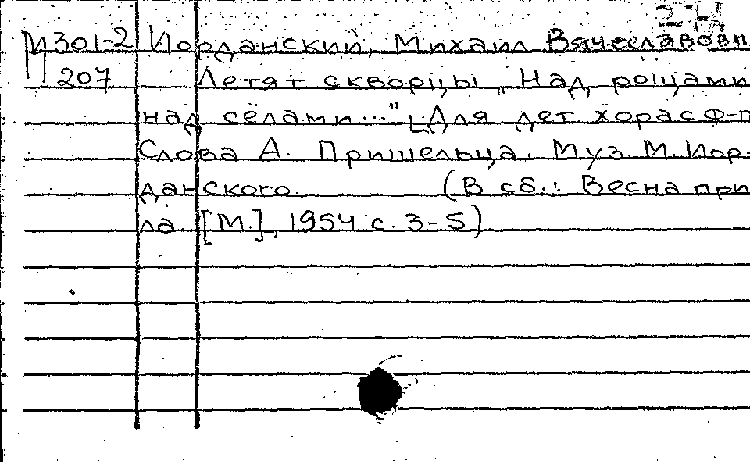 М301-2 Иорданский, Михаил Вячеславови
207 Летят скворцы „Над рощами
над сёлами..." [Для дет хора с ф-п
Слова А. Пришельца. Муз М. Иор-
данского. (В сб.: Весна при
ла. [М.], 1954 с. 3-5)